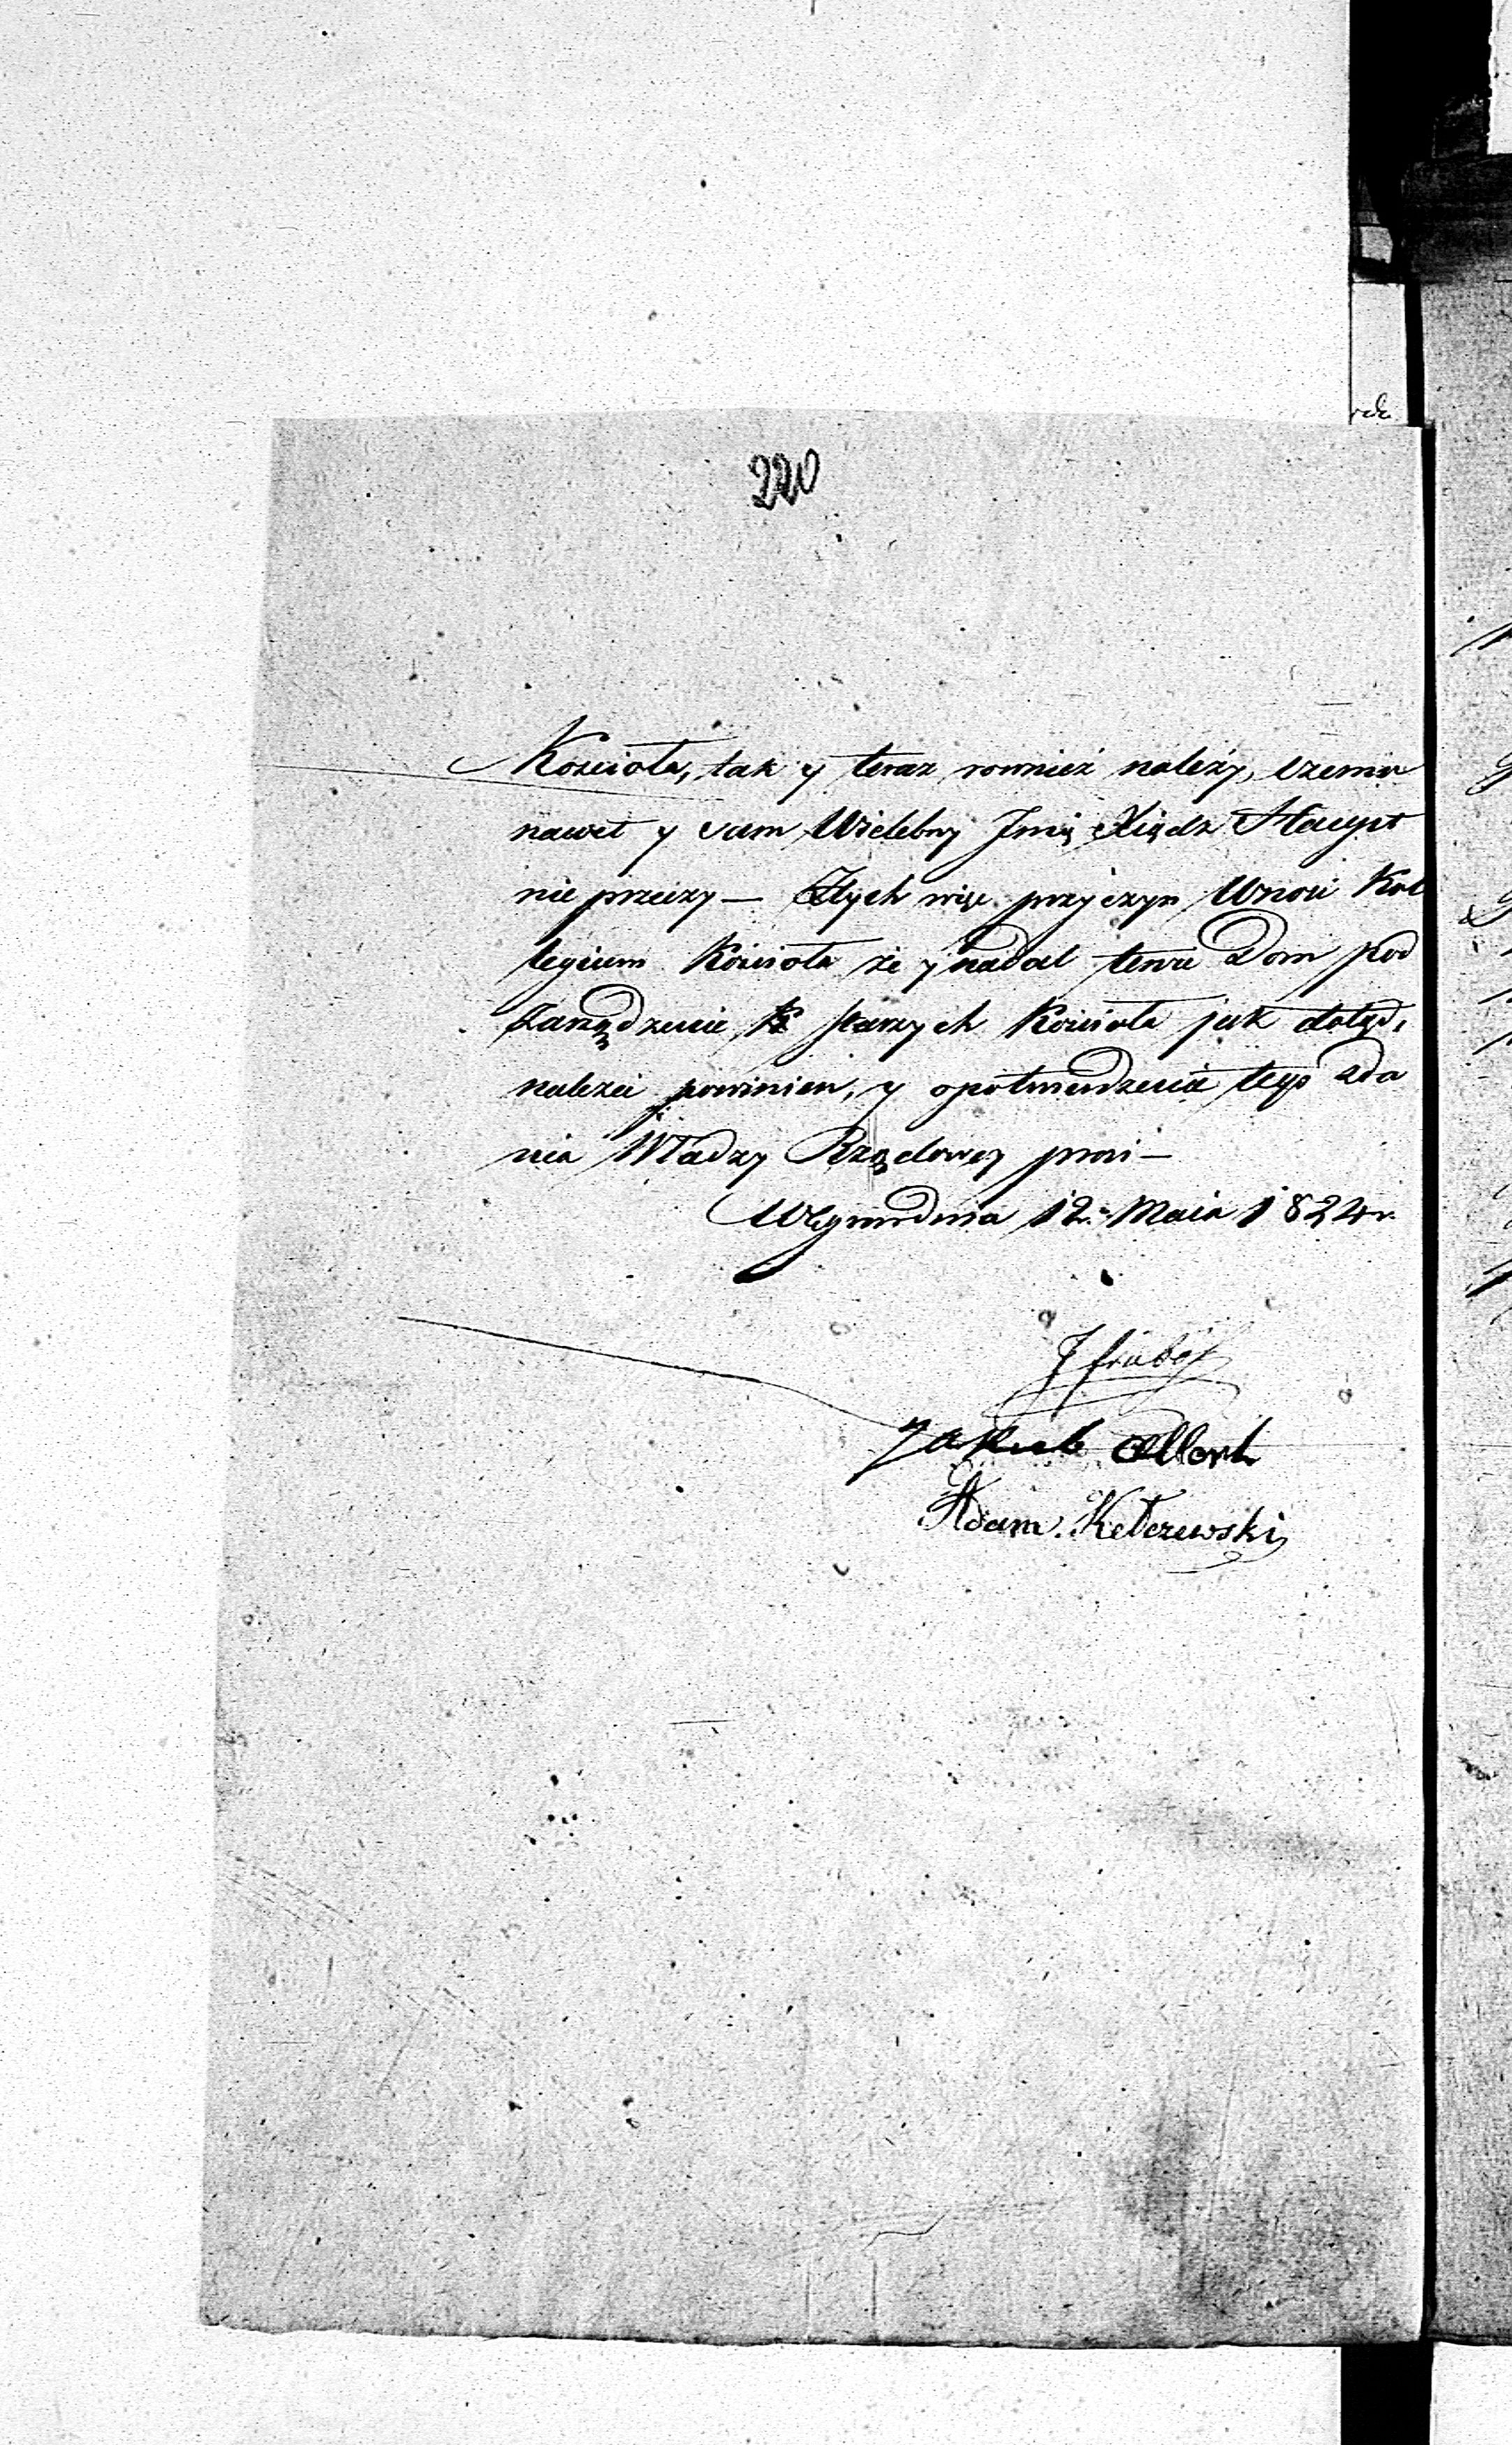 220
Kościoła, tak y teraz rownież należy, czemu
nawet y sam Wielebny Jmę Xiądz Haupt
nie przeczy — Ztych więc przyczyn Wnosi Kol
legium Kościoła że y nadal tenże Dom pod
Zarządzenie Starszych Kościoła jak dotąd,
należeć powinien, y opotwierdzenie tego zda
nia Władzy Rządowey prosi —
12. Maia 1824 r.
Jakub
Adam Kełczewski